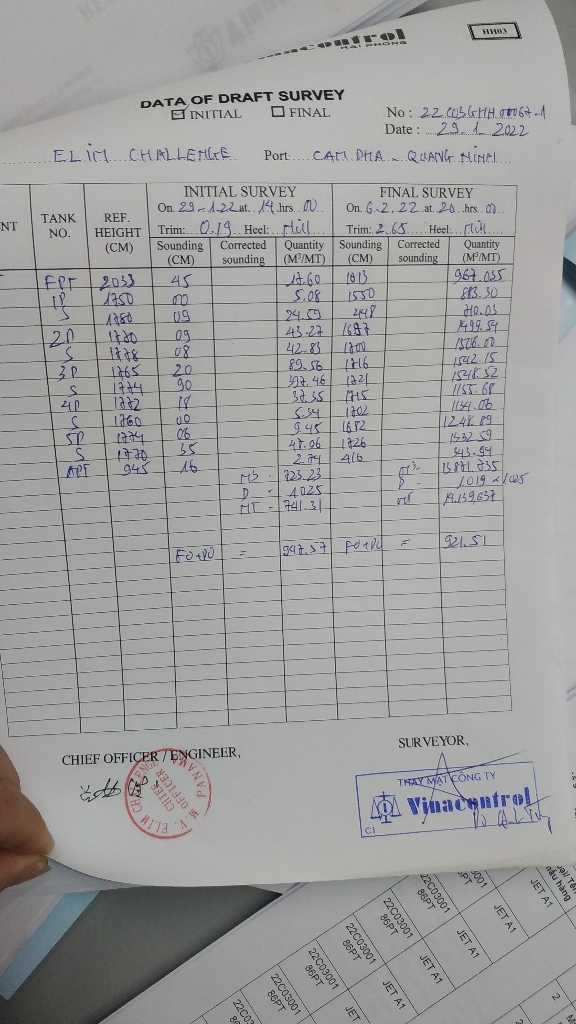 Vinacontrol
HAI PHONG
HH03
DATA OF DRAFT SURVEY
INITIAL FINAL
No :
Date : 29.1.2022
ELIM CHALLENGE Port
INITIAL SURVEY FINAL SURVEY
On 29-1.22 at 14 hrs 00 On 6.2.22 at 20 hrs 00
Trim: 0.19 Heel: Trim: 2.65 Heel:
NT TANK NO. REF. HEIGHT (CM) Sounding (CM) Corrected sounding Quantity (M³/MT) Sounding (CM) Corrected sounding Quantity (M³/MT)
FPT 2033 45 17.60 1813 967.035
1P 1750 00 5.08 1550 883.30
S 1780 09 24.59 448 710.03
2P 1780 09 43.27 1697 1499.54
S 1778 08 42.83 1700 1506.00
3P 1765 20 89.56 1716 1542.15
S 1774 90 397.46 1721 1548.52
4P 1772 18 37.35 1715 1155.68
S 1760 00 5.34 1702
5P 1774 06 9.45 1682 1248.89
S 1770 35 47.06 1726 1332.59
APT 945 16 2.74 416 343.94
M3 - 723.23 M3 13871.735
D - 1.025 D - 1.019 x 1.025
MT - 741.31 MT 14.139,637
FO+DO = 947.57 FO+DO = 921.51
CHIEF OFFICER / ENGINEER,
SURVEYOR,
M.V. ELIM CHALLENGE
CHIEF OFFICER
PANAMA
THAY MẶT CÔNG TY
Vinacontrol
CI
22C03001
86PT
JET A1
22C03001
86PT
JET A1
22C03001
86PT
JET A1
22C03001
86PT
JET A1